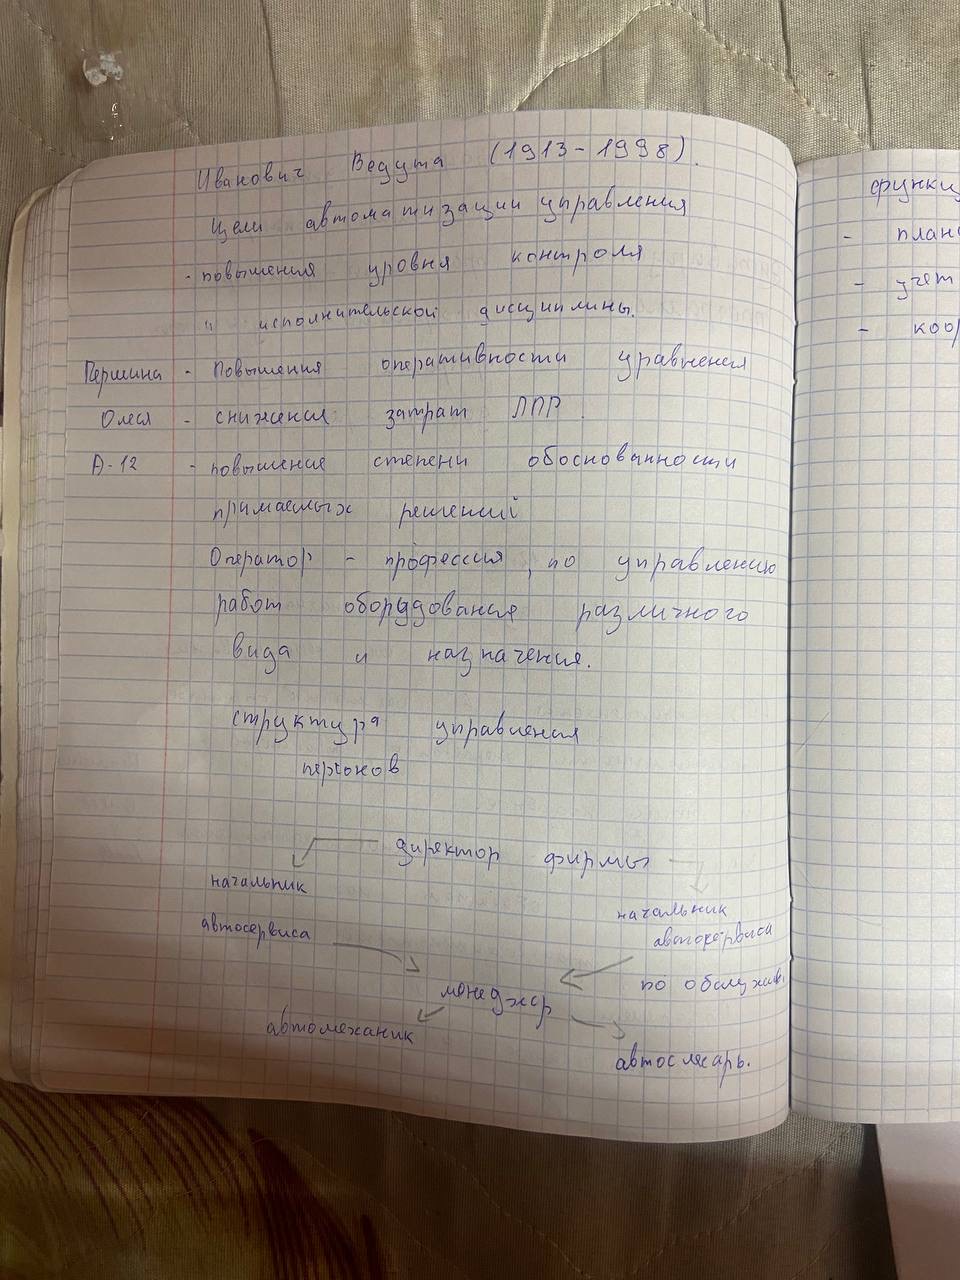 Иванович Ведута (1913-1998).
Цели автоматизации управления
- повышения уровня контроля
" исполнительской дисциплины.
Першина - Повышения оперативности уравнения
Олеся - снижения затрат ЛПР.
А-12 - повышение степени обоснованности
примаемых решений
Оператор - профессия, по управлению
работ оборудования различного
вида и назначения.
структура управления
персонов
директор фирмы
начальник
автосервиса
начальник
автосервиса
по обслужив.
менеджер
автомеханик
автослесарь.
функц
- план
- учет
- коор